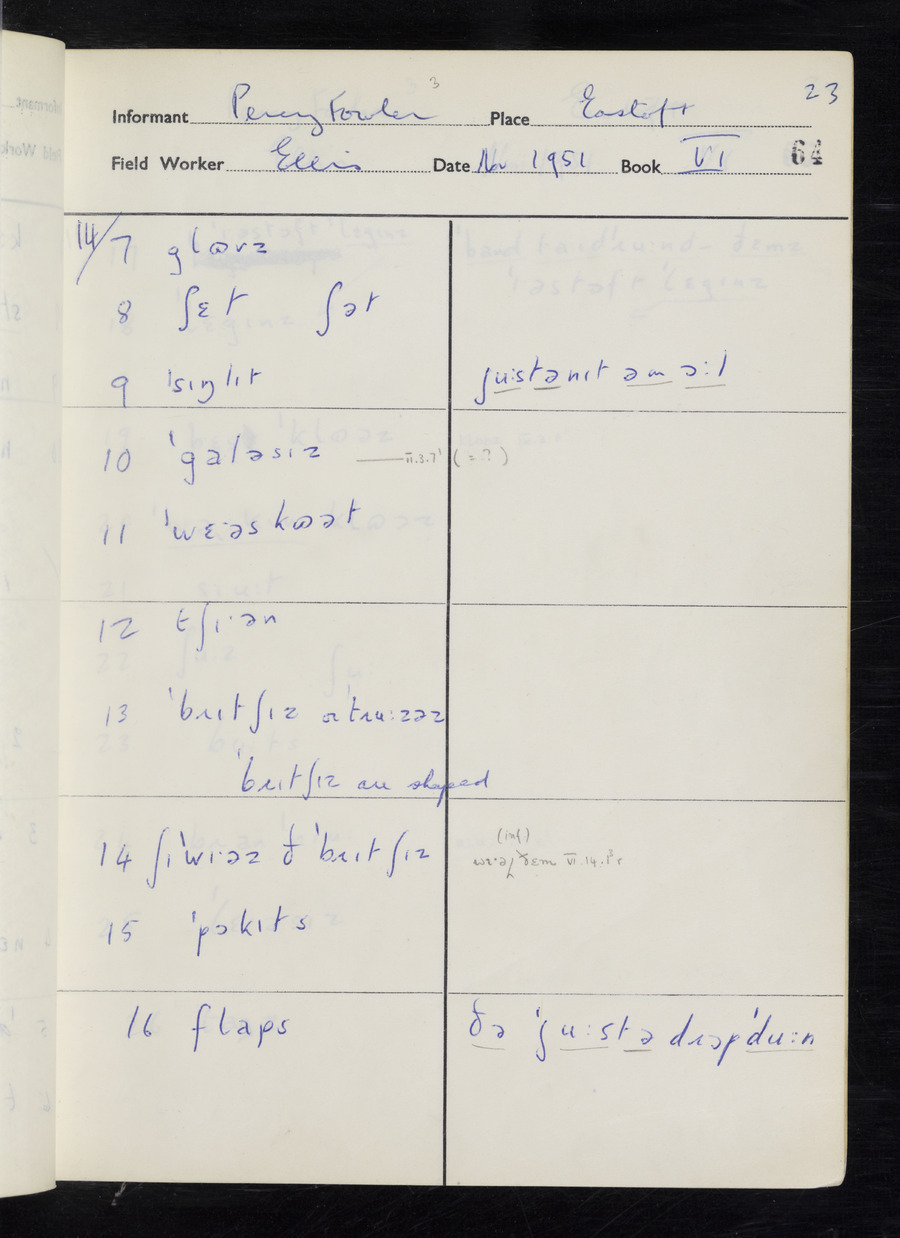 3
23
Informant Percy Fowler Place Eastoft
Field Worker Ellis Date Nov 1951 Book VI 64
14/7 glɷvz
8 ʃɛt ʃət
9 ˈsɪŋlɪt ju:stə nɪt əm ə:l
10 ˈgaləsɪz II.3.7 (= ?)
11 ˈwɛ·əskɷət
12 tʃɪ·ən
13 ˈbrɪtʃɪz ə ˈtru:zəz
ˈbrɪtʃɪz are shaped
14 ʃɪ ˈwɪ·əz ð ˈbrɪtʃɪz (inf)
ðɛm VI.14.
15 ˈpɔkɪts
16 flaps ðə ˈju:stə drɔp ˈdu:n